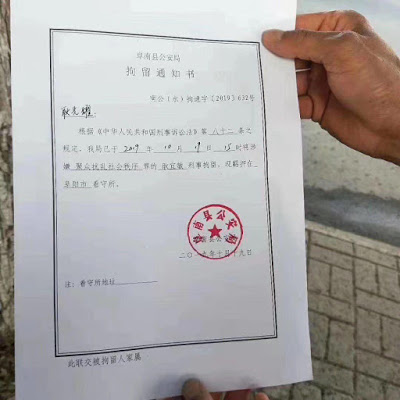 阜南县公安局
拘留通知书
南公（水）拘通字〔2019〕632号
根据《中华人民共和国刑事诉讼法》第 八十二 条之
规定，我局已于 2019 年 10 月 19 日 15 时将涉
嫌 聚众扰乱社会秩序 罪的 耿宜敬 刑事拘留，现羁押在
阜阳市 看守所。
阜南县公安局
二〇一九年十月十九日
注：看守所地址
此联交被拘留人家属